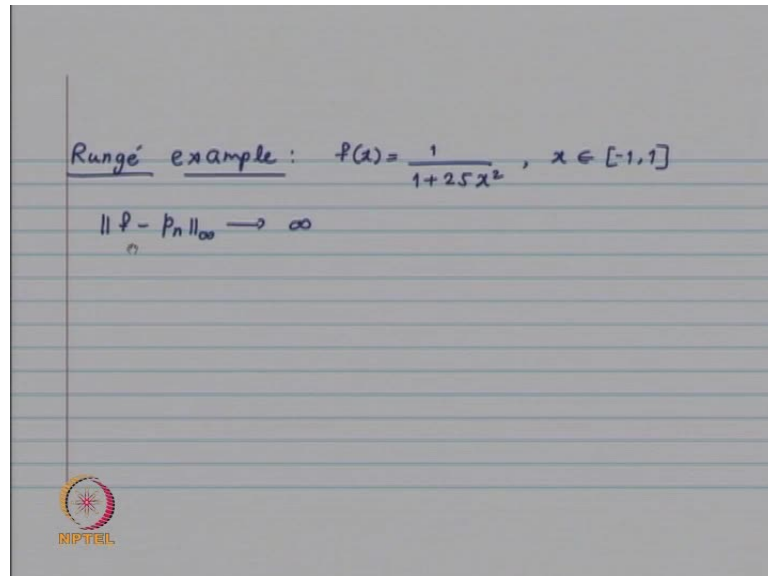 Rungé example : f(x) = 1 / (1 + 25x²) , x ∈ [-1, 1]
‖ f - pₙ ‖∞ ⟶ ∞
NPTEL